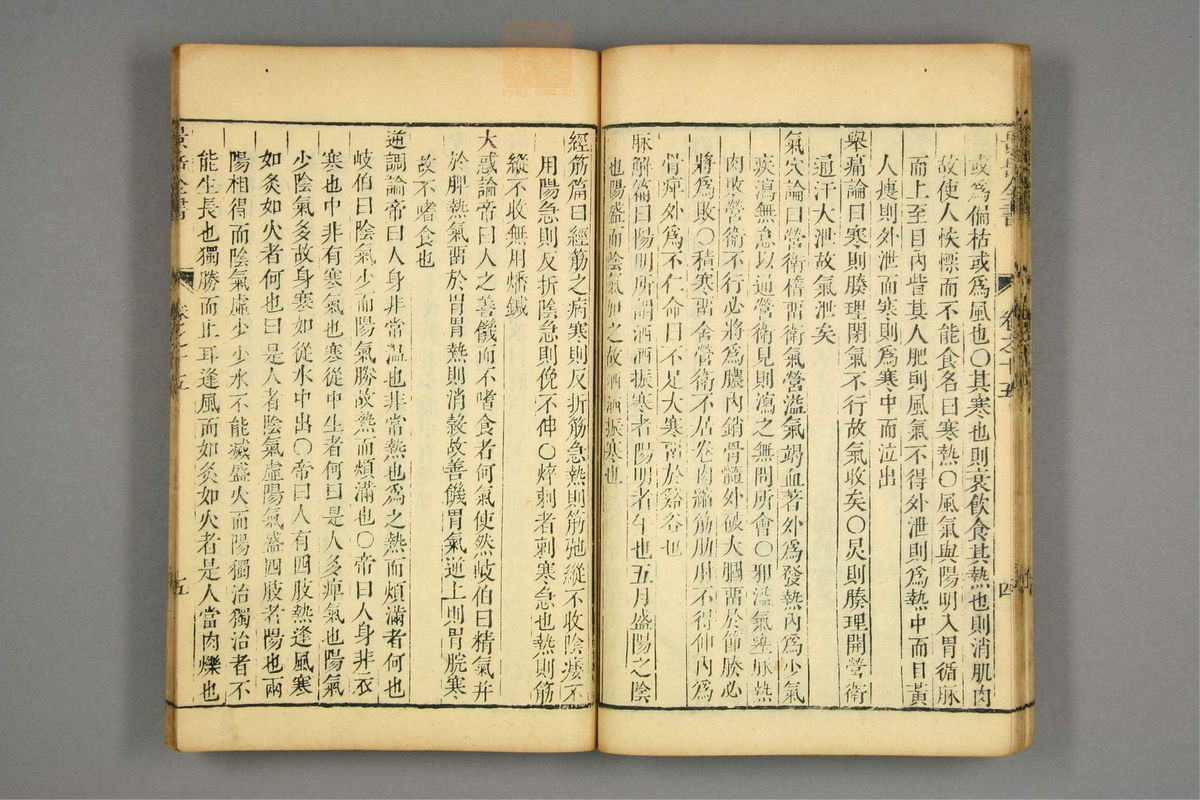 或爲偏枯或爲風也〇其寒也則衰飲食其熱也則消肌肉
故使人怢慄而不能食名曰寒熱〇風氣與陽明入胃循脉
而上至目內眥其人肥則風氣不得外泄則爲熱中而目黃
人瘦則外泄而寒則爲寒中而泣出
舉痛論曰寒則腠理閉氣不行故氣收矣〇炅則腠理開營衛
通汗大泄故氣泄矣
氣穴論曰營衛稽畱衛氣營溢氣竭血著外爲發熱內爲少氣
疾瀉無怠以通營衛見則瀉之無問所會〇邪溢氣壅脉熱
肉敗營衛不行必將爲膿內銷骨髓外破大膕畱於節腠必
將爲敗〇積寒畱舍營衛不居卷肉縮筋肋肘不得伸內爲
骨痺外爲不仁命曰不足大寒畱於谿谷也
脉解篇曰陽明所謂洒洒振寒者陽明者午也五月盛陽之陰
也陽盛而陰氣加之故洒洒振寒也
四
經筋篇曰經筋之病寒則反折筋急熱則筋弛縱不收陰痿不
用陽急則反折陰急則俛不伸〇焠刺者刺寒急也熱則筋
縱不收無用燔鍼
大惑論帝曰人之善饑而不嗜食者何氣使然岐伯曰精氣并
於脾熱氣畱於胃胃熱則消穀故善饑胃氣逆上則胃脘寒
故不嗜食也
逆調論帝曰人身非常温也非常熱也爲之熱而煩滿者何也
岐伯曰陰氣少而陽氣勝故熱而煩滿也〇帝曰人身非衣
寒也中非有寒氣也寒從中生者何曰是人多痺氣也陽氣
少陰氣多故身寒如從水中出〇帝曰人有四肢熱逢風寒
如炙如火者何也曰是人者陰氣虛陽氣盛四肢者陽也兩
陽相得而陰氣虛少少水不能滅盛火而陽獨治獨治者不
能生長也獨勝而止耳逢風而如炙如火者是人當肉爍也
景岳全書
卷之十五
五
zysj.com.cn